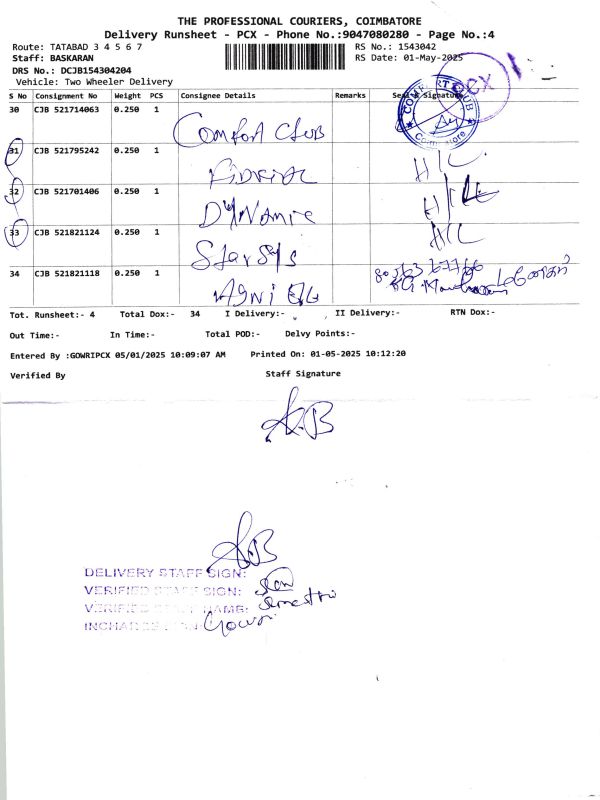 THE PROFESSIONAL COURIERS, COIMBATORE
Delivery Runsheet - PCX - Phone No.:9047080280 - Page No.:4
Route: TATABAD 3 4 5 6 7 RS No.: 1543042
Staff: BASKARAN RS Date: 01-May-2025
DRS No.: DCJB154304204
Vehicle: Two Wheeler Delivery
PCX
S No Consignment No Weight PCS Consignee Details Remarks Seal & Signature
30 CJB 521714063 0.250 1 Comfort Club
COMFORT CLUB
Coimbatore
31 CJB 521795242 0.250 1 H/C
32 CJB 521701406 0.250 1 Dynamic
33 CJB 521821124 0.250 1 Starsys H/C
34 CJB 521821118 0.250 1 Agni
Tot. Runsheet:- 4 Total Dox:- 34 I Delivery:- II Delivery:- RTN Dox:-
Out Time:- In Time:- Total POD:- Delvy Points:-
Entered By :GOWRIPCX 05/01/2025 10:09:07 AM Printed On: 01-05-2025 10:12:20
Verified By Staff Signature
DELIVERY STAFF SIGN:
VERIFIED STAFF SIGN:
VERIFIED STAFF NAME:
INCHARGE SIGN: Gowri